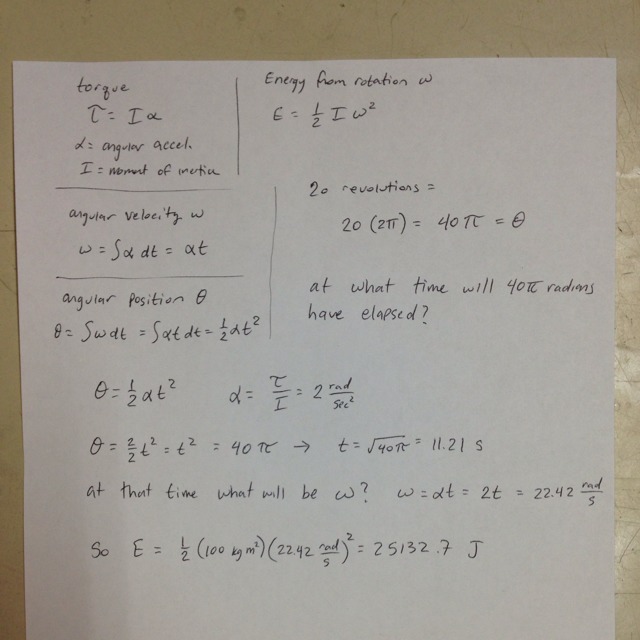 torque
τ = I α
α = angular accel.
I = moment of inertia
Energy from rotation ω
E = ½ I ω²
angular velocity ω
ω = ∫α dt = αt
angular position θ
θ = ∫ω dt = ∫αt dt = ½αt²
20 revolutions =
20 (2π) = 40π = θ
at what time will 40π radians
have elapsed?
θ = ½αt² α = τ/I = 2 rad/sec²
θ = 2/2 t² = t² = 40π → t = √40π = 11.21 s
at that time what will be ω? ω = αt = 2t = 22.42 rad/s
So E = ½ (100 kg m²)(22.42 rad/s)² = 25132.7 J